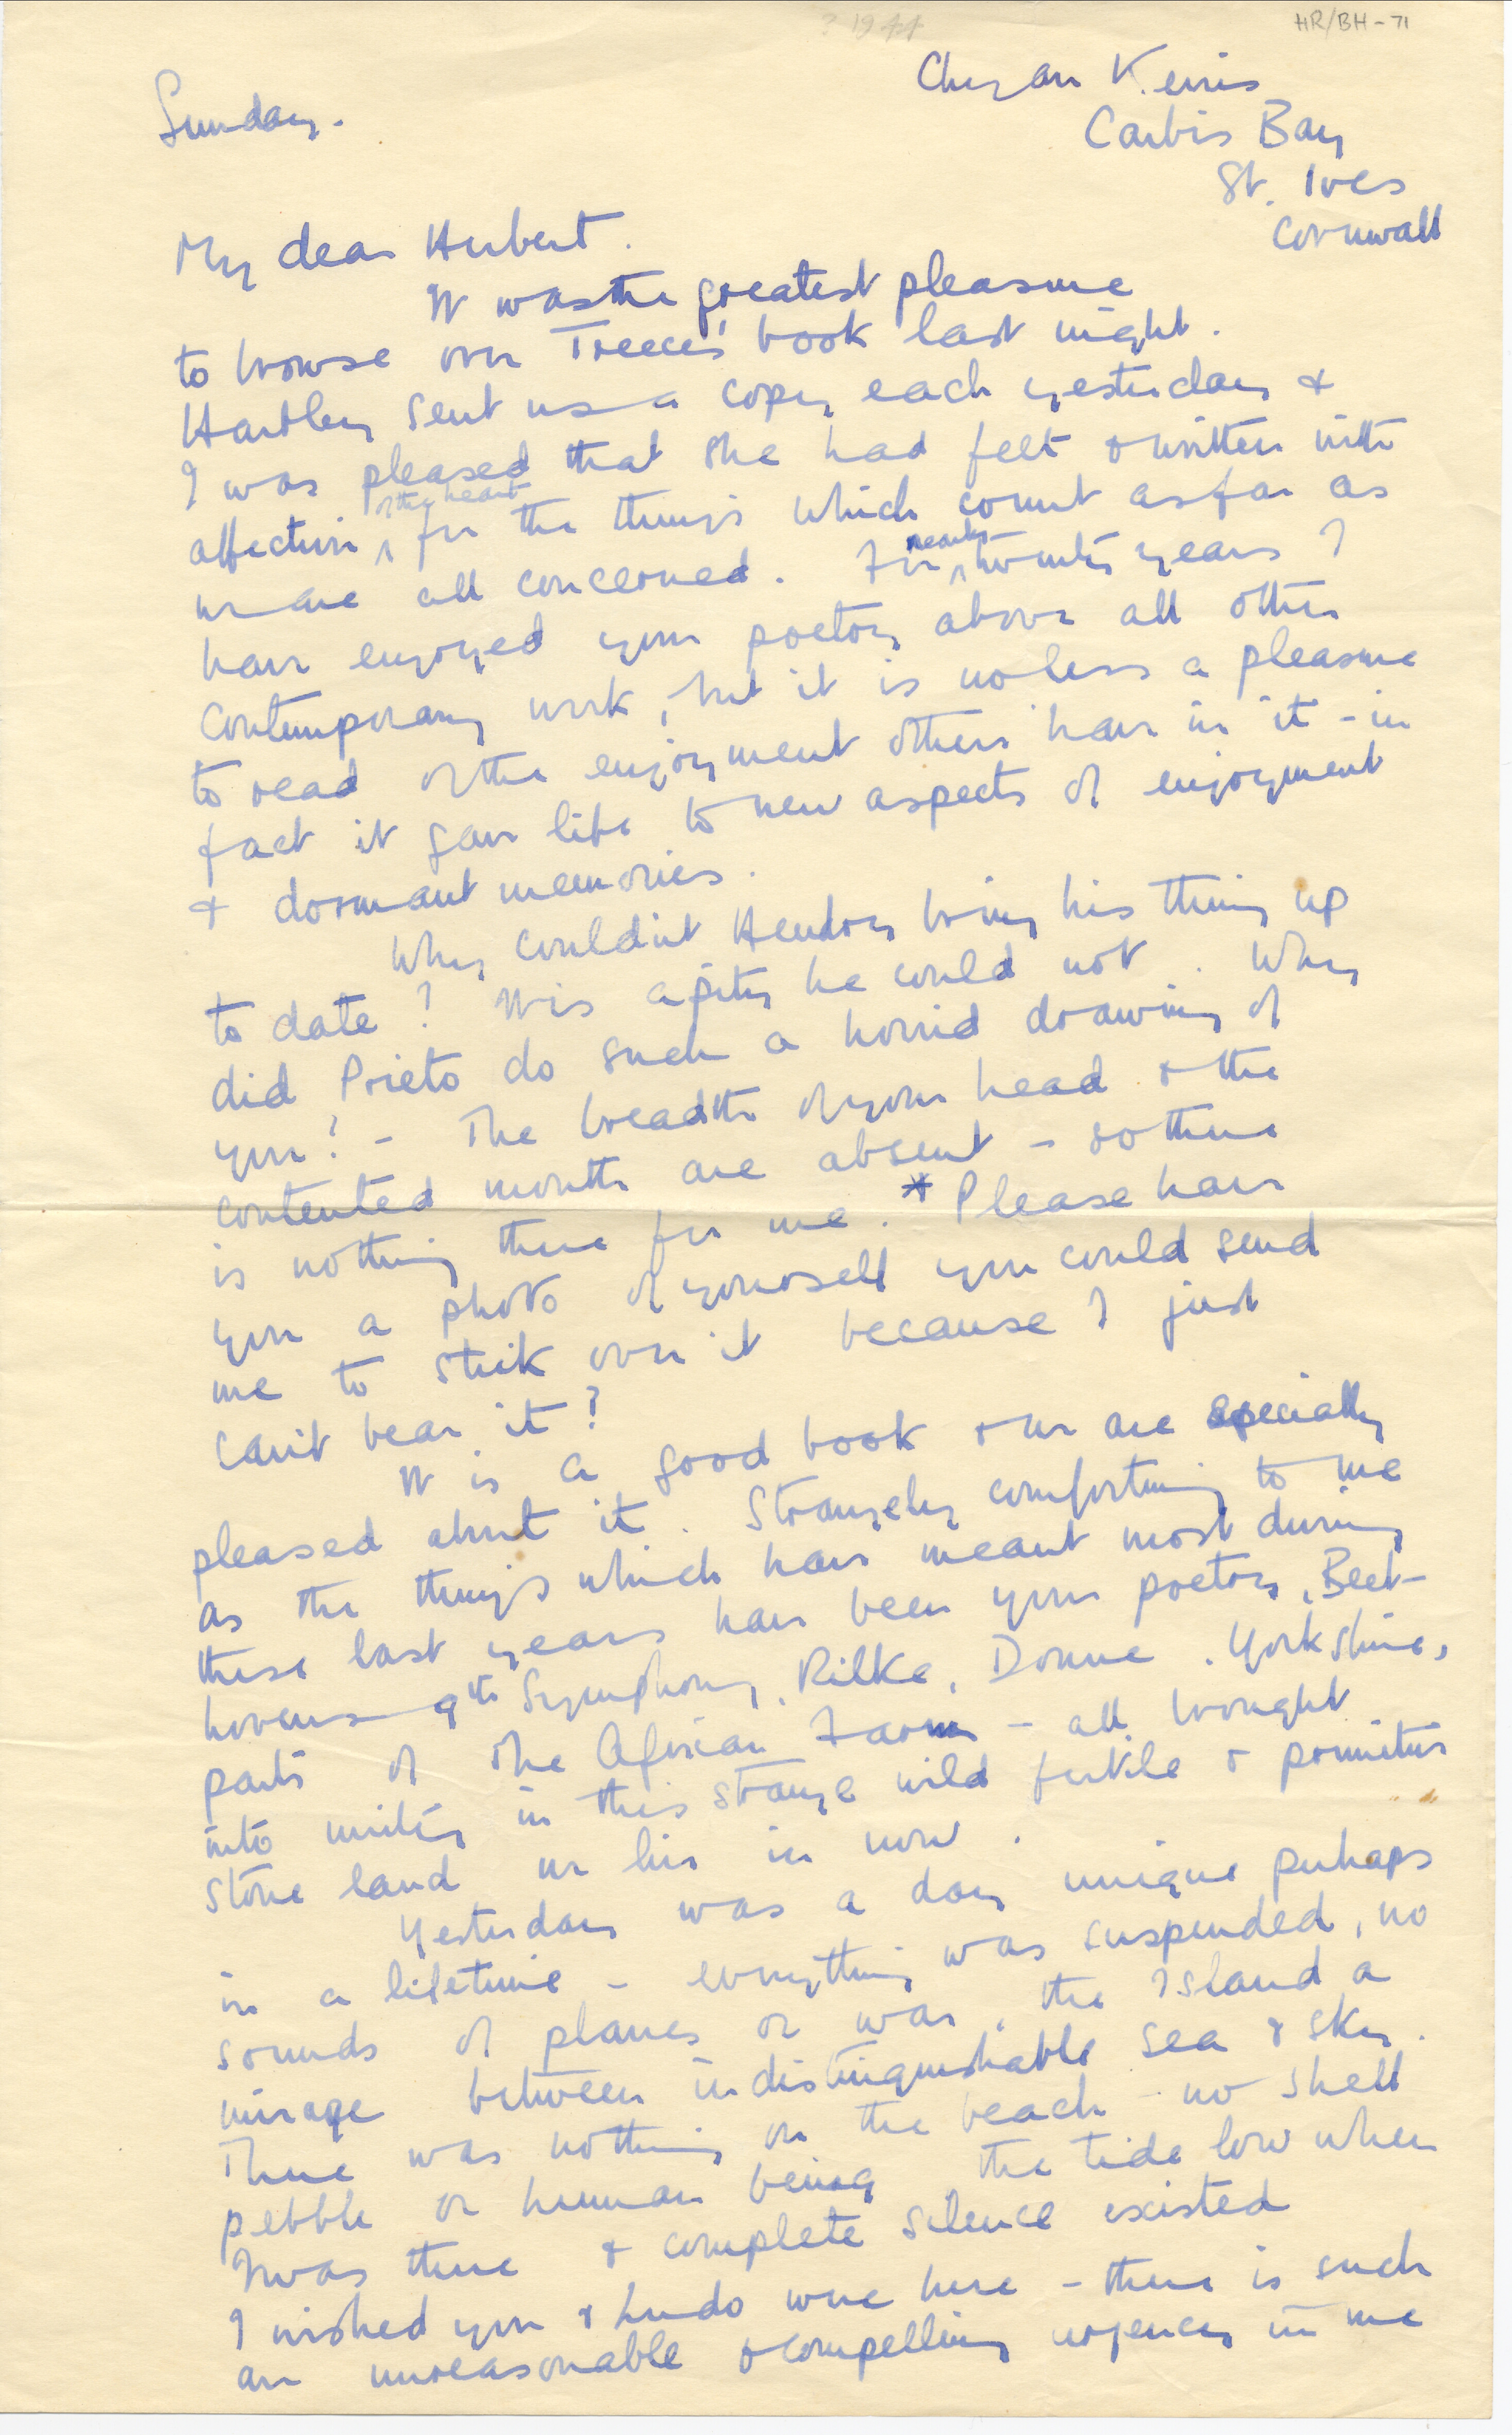 ? 1944
HR/BH-71
Sunday.
Chy an Kerris
Carbis Bay
St. Ives
Cornwall
My dear Herbert.
It was the greatest pleasure
to browse over Treece's book last night.
Hartley sent us a copy each yesterday &
I was pleased that she had felt & written with
affection of the heart for the things which count as far as
we are all concerned. For nearly twenty years I
have enjoyed your poetry above all other
contemporary work, but it is no less a pleasure
to read of the enjoyment others have in it - in
fact it gave life to new aspects of enjoyment
& dormant memories.
Why couldn't Hendry bring his thing up
to date? It is a pity he could not. Why
did Prieto do such a horrid drawing of
you! - The breadth of your head & the
contented mouth are absent - so there
is nothing there for me. * Please have
you a photo of yourself you could send
me to stick over it because I just
can't bear it?
It is a good book & we are specially
pleased about it. Strangely comforting to me
as the things which have meant most during
these last years have been your poetry, Beet-
hovens 9th Symphony, Rilke, Donne. Yorkshire,
parts of The African Farm - all brought
into unity in this strange wild fertile & primitive
stone land we live in now.
Yesterday was a day unique perhaps
in a lifetime - everything was suspended, no
sounds of planes or war, the Island a
mirage between indistinguishable sea & sky.
There was nothing on the beach - no shell
pebble or human being the tide low when
I was there & complete silence existed
I wished you & Ludo were here - there is such
an unreasonable & compelling urgency in me